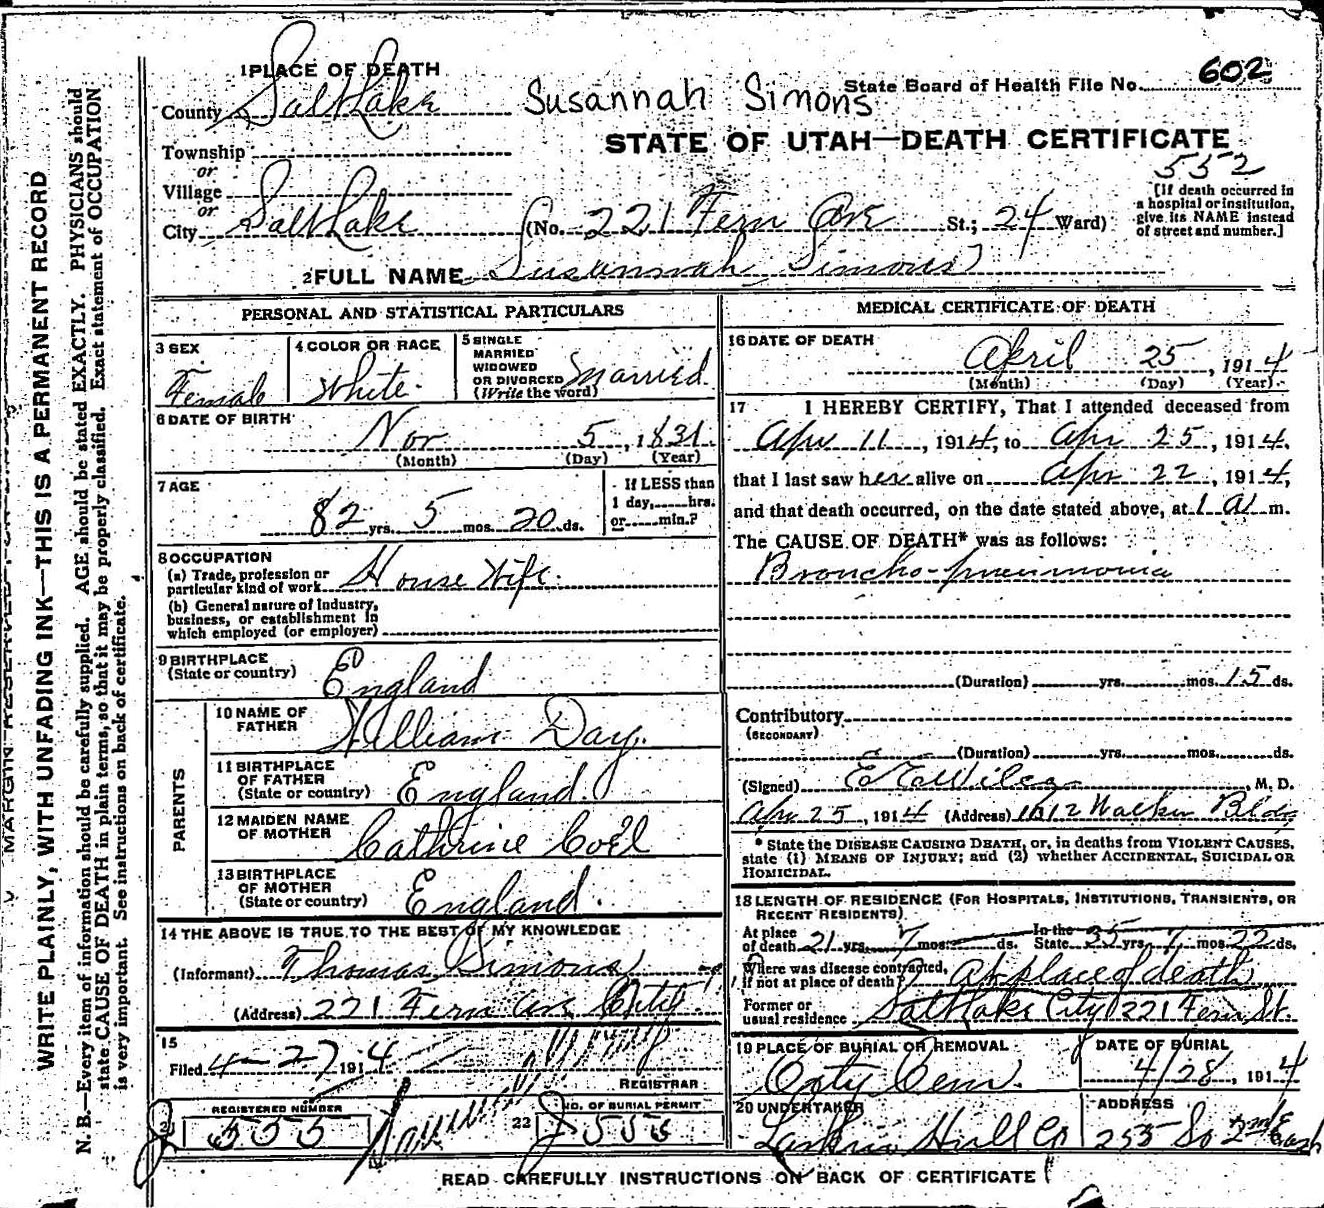 1 PLACE OF DEATH
County Salt Lake
Susannah Simons
State Board of Health File No. 602
STATE OF UTAH—DEATH CERTIFICATE
Township
or
Village
or
City Salt Lake
(No. 221 Fern Ave St.; 24 Ward)
552
[If death occurred in
a hospital or institution,
give its NAME instead
of street and number.]
2 FULL NAME Susannah Simons
PERSONAL AND STATISTICAL PARTICULARS
3 SEX
Female
4 COLOR OR RACE
White.
5 SINGLE
MARRIED
WIDOWED
OR DIVORCED
(Write the word)
Married.
6 DATE OF BIRTH
Nov 5, 1831.
(Month) (Day) (Year)
7 AGE
82 yrs. 5 mos. 20 ds.
If LESS than
1 day, hrs.
or min.?
8 OCCUPATION
(a) Trade, profession or
particular kind of work House Wife.
(b) General nature of Industry,
business, or establishment in
which employed (or employer)
9 BIRTHPLACE
(State or country) England
PARENTS
10 NAME OF
FATHER William Day.
11 BIRTHPLACE
OF FATHER
(State or country) England.
12 MAIDEN NAME
OF MOTHER Cathrine
13 BIRTHPLACE
OF MOTHER
(State or country) England.
14 THE ABOVE IS TRUE TO THE BEST OF MY KNOWLEDGE
(Informant) Thomas Simons
(Address) 221 Fern Ave City
15
Filed 4-27 1914
REGISTRAR
21 REGISTERED NUMBER
555
22 NO. OF BURIAL PERMIT
MEDICAL CERTIFICATE OF DEATH
16 DATE OF DEATH
April 25, 1914
(Month) (Day) (Year)
17 I HEREBY CERTIFY, That I attended deceased from
Apr 11, 1914, to Apr 25, 1914,
that I last saw her alive on Apr 22, 1914,
and that death occurred, on the date stated above, at 1 A m.
The CAUSE OF DEATH* was as follows:
Broncho-pneumonia
(Duration) yrs. mos. 15 ds.
Contributory
(SECONDARY)
(Duration) yrs. mos. ds.
(Signed) E E Wilcox, M. D.
Apr 25, 1914 (Address) 1012 Walker Bldg
* State the DISEASE CAUSING DEATH, or, in deaths from VIOLENT CAUSES,
state (1) MEANS OF INJURY; and (2) whether ACCIDENTAL, SUICIDAL OR
HOMICIDAL.
18 LENGTH OF RESIDENCE (FOR HOSPITALS, INSTITUTIONS, TRANSIENTS, OR
RECENT RESIDENTS)
At place
of death 21 yrs. 7 mos. ds.
In the
State 35 yrs. 7 mos. 22 ds.
Where was disease contracted,
if not at place of death? At place of death
Former or
usual residence Salt Lake City 221 Fern St.
19 PLACE OF BURIAL OR REMOVAL
City Cem.
DATE OF BURIAL
4/28, 1914
20 UNDERTAKER
Larkin Hull Co
ADDRESS
255 So 2nd East
READ CAREFULLY INSTRUCTIONS ON BACK OF CERTIFICATE
WRITE PLAINLY, WITH UNFADING INK—THIS IS A PERMANENT RECORD
N. B.—Every item of information should be carefully supplied. AGE should be stated EXACTLY. PHYSICIANS should
state CAUSE OF DEATH in plain terms, so that it may be properly classified. Exact statement of OCCUPATION
is very important. See instructions on back of certificate.